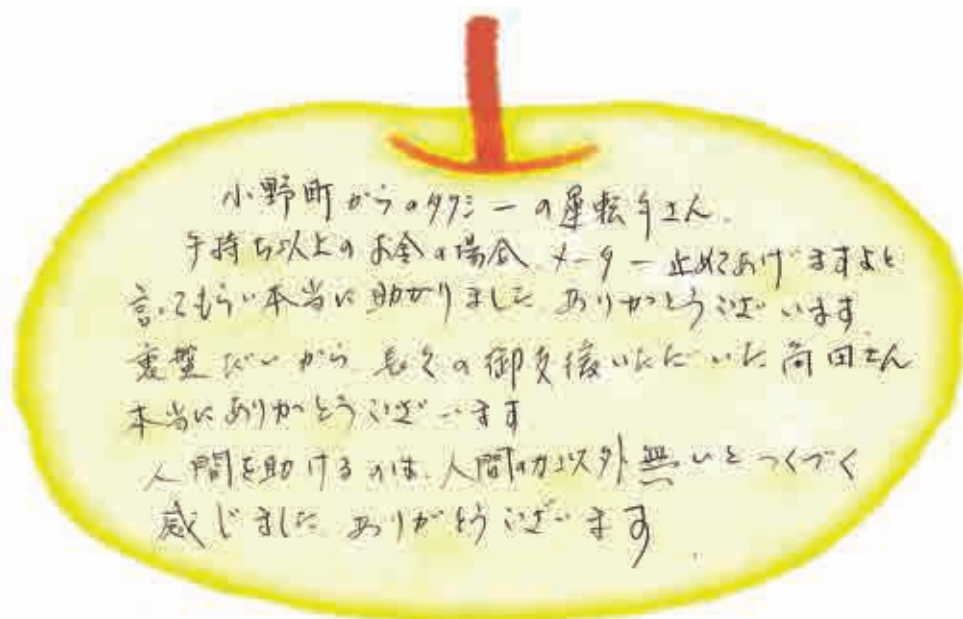 小野町からのタクシーの運転手さん、
手持ち以上のお金の場合、メーター止めてあげますよと
言ってもらい本当に助かりました。ありがとうございます
裏磐だいから 長々の御支援いただいた 向田さん
本当にありがとうございます
人間を助けるのは、人間の力以外無いとつくづく
感じました ありがとうございます